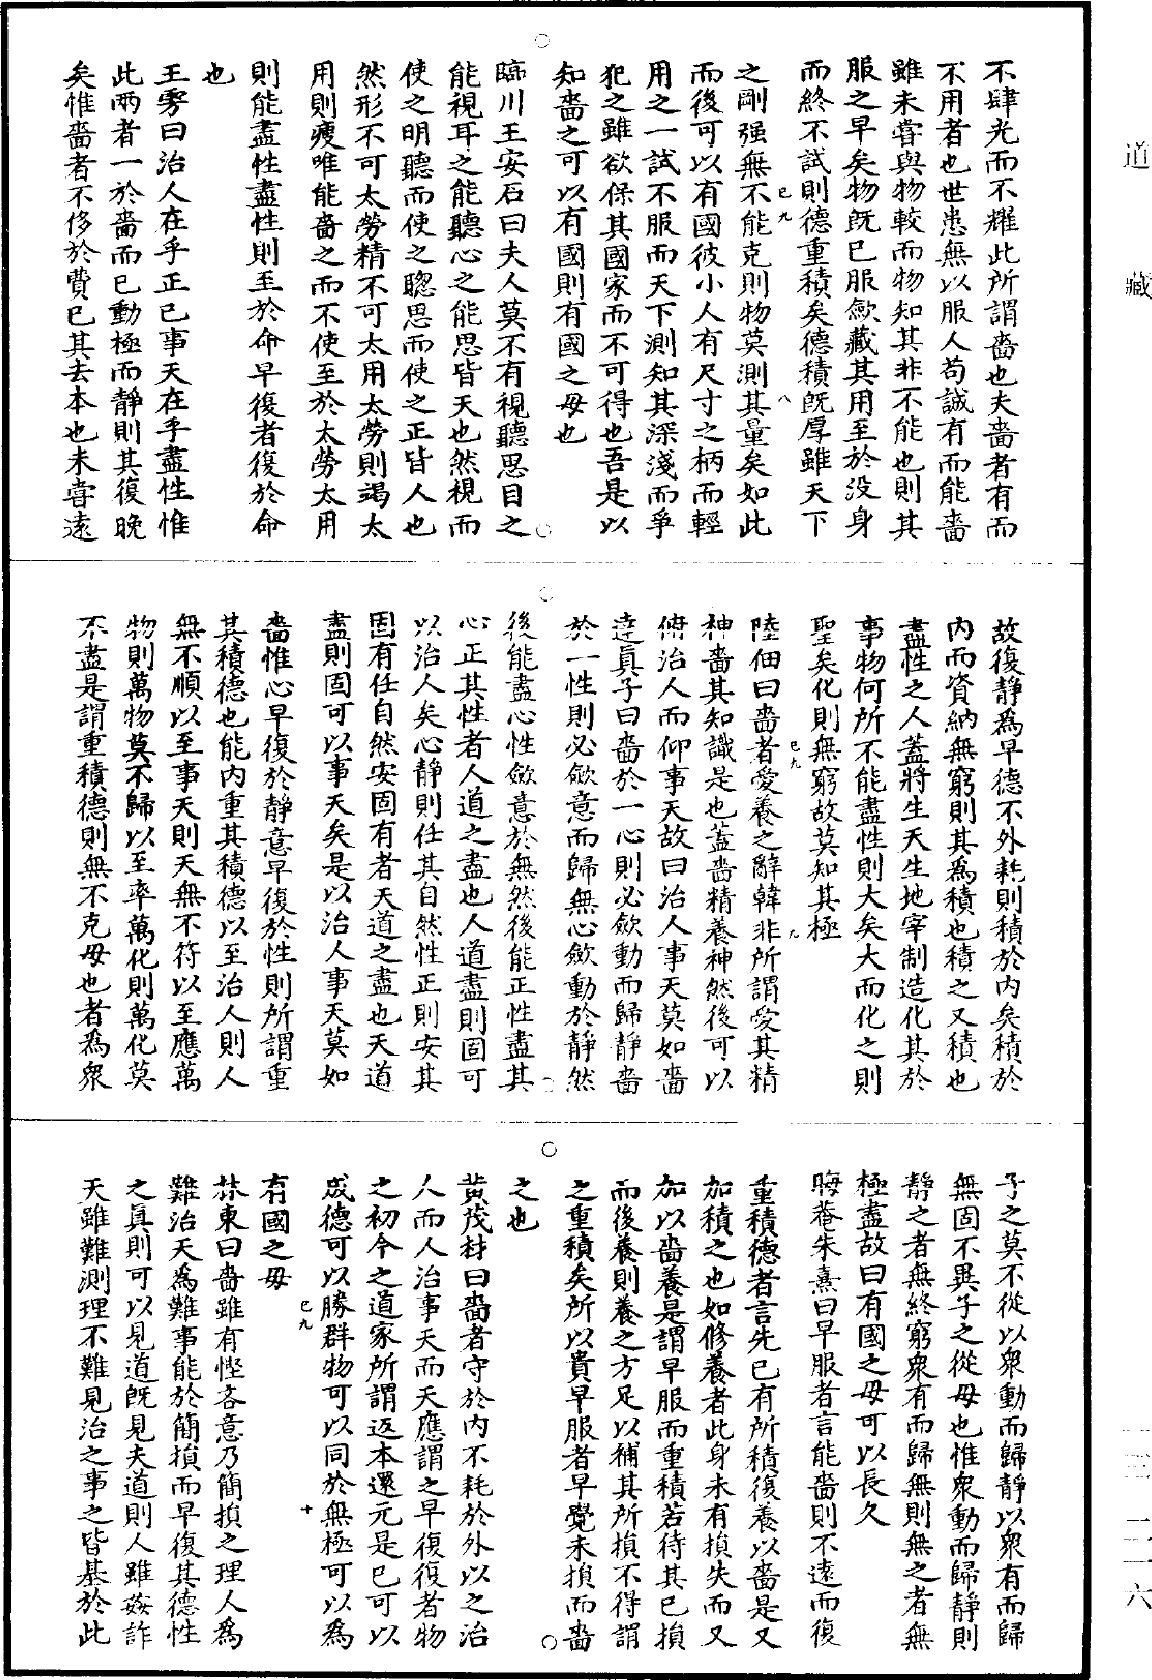 不肆光而不耀此所謂嗇也夫嗇者有而
不用者也世患無以服人苟誠有而能嗇
雖未嘗與物較而物知其非不能也則其
服之早矣物既已服斂藏其用至於没身
而終不試則德重積矣德積既厚雖天下
己九
八
之剛强無不能克則物莫測其量矣如此
而後可以有國彼小人有尺寸之柄而輕
用之一試不服而天下測知其深淺而爭
犯之雖欲保其國家而不可得也吾是以
知嗇之可以有國則有國之母也
臨川王安石曰夫人莫不有視聽思目之
能視耳之能聽心之能思皆天也然視而
使之明聽而使之聰思而使之正皆人也
然形不可太勞精不可太用太勞則竭太
用則瘦唯能嗇之而不使至於太勞太用
則能盡性盡性則至於命早復者復於命
也
王雱曰治人在乎正己事天在乎盡性惟
此兩者一於嗇而已動極而靜則其復晚
矣惟嗇者不侈於費已其去本也未嘗遠
故復靜為早德不外耗則積於内矣積於
内而資納無窮則其為積也積之又積也
盡性之人蓋將生天生地宰制造化其於
事物何所不能盡性則大矣大而化之則
聖矣化則無窮故莫知其極
己九
九
陸佃曰嗇者愛養之辭韓非所謂愛其精
神嗇其知識是也蓋嗇精養神然後可以
俯治人而仰事天故曰治人事天莫如嗇
達真子曰嗇於一心則必斂動而歸靜嗇
於一性則必斂意而歸無心斂動於靜然
後能盡心性斂意於無然後能正性盡其
心正其性者人道之盡也人道盡則固可
以治人矣心靜則任其自然性正則安其
固有任自然安固有者天道之盡也天道
盡則固可以事天矣是以治人事天莫如
嗇惟心早復於靜意早復於性則所謂重
其積德也能内重其積德以至治人則人
無不順以至事天則天無不符以至應萬
物則萬物莫不歸以至率萬化則萬化莫
不盡是謂重積德則無不克母也者為衆
子之莫不從以衆動而歸靜以衆有而歸
無固不異子之從母也惟衆動而歸靜則
靜之者無終窮衆有而歸無則無之者無
極盡故曰有國之母可以長久
晦菴朱熹曰早服者言能嗇則不遠而復
重積德者言先已有所積復養以嗇是又
加積之也如修養者此身未有損失而又
加以嗇養是謂早服而重積若待其已損
而後養則養之方足以補其所損不得謂
之重積矣所以貴早服者早覺未損而嗇
之也
黄茂材曰嗇者守於内不耗於外以之治
人而人治事天而天應謂之早復復者物
之初今之道家所謂返本還元是已可以
成德可以勝群物可以同於無極可以為
己九
十
有國之母
林東曰嗇雖有慳吝意乃簡損之理人為
難治天為難事能於簡損而早復其德性
之真則可以見道既見夫道則人雖姦詐
天雖難測理不難見治之事之皆基於此
道藏
一三—二一六